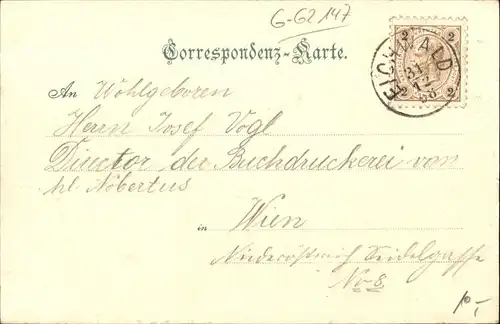 G-62147
Correspondenz-Karte.
2 2
EICHWALD
31
12
98
2 2
An Wohlgeboren
Herrn Josef Vogl
Director der Buchdruckerei von
hl Nobertus
in Wien
Niederöstreich Seidelgasse
No 8
10,-